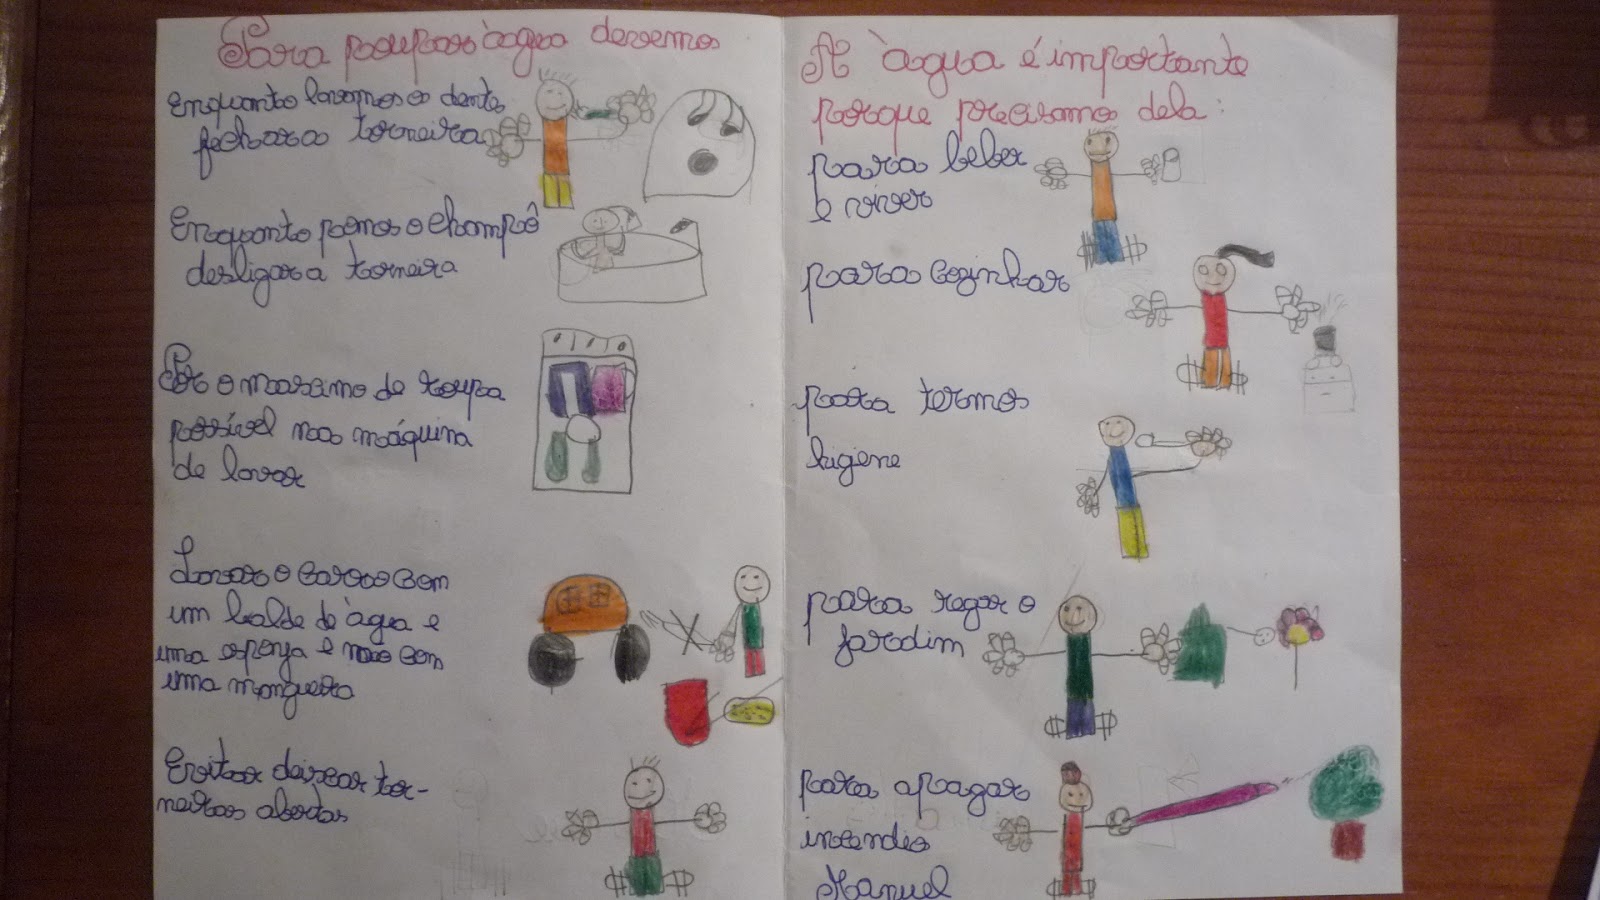 Para poupar àgua devemos
Enquanto lavamos os dentes
fechar a torneira
Enquanto pomos o champô
desligar a torneira
Pôr o maximo de roupa
possível na máquina
de lavar
Lavar o carro com
um balde de àgua e
uma esponja e não com
uma mangueira
Evitar deixar tor-
neiras abertas
A àgua é importante
porque precisamos dela:
para beber
e viver
para cozinhar
para termos
higiene
para regar o
jardim
para apagar
incendios
Manuel